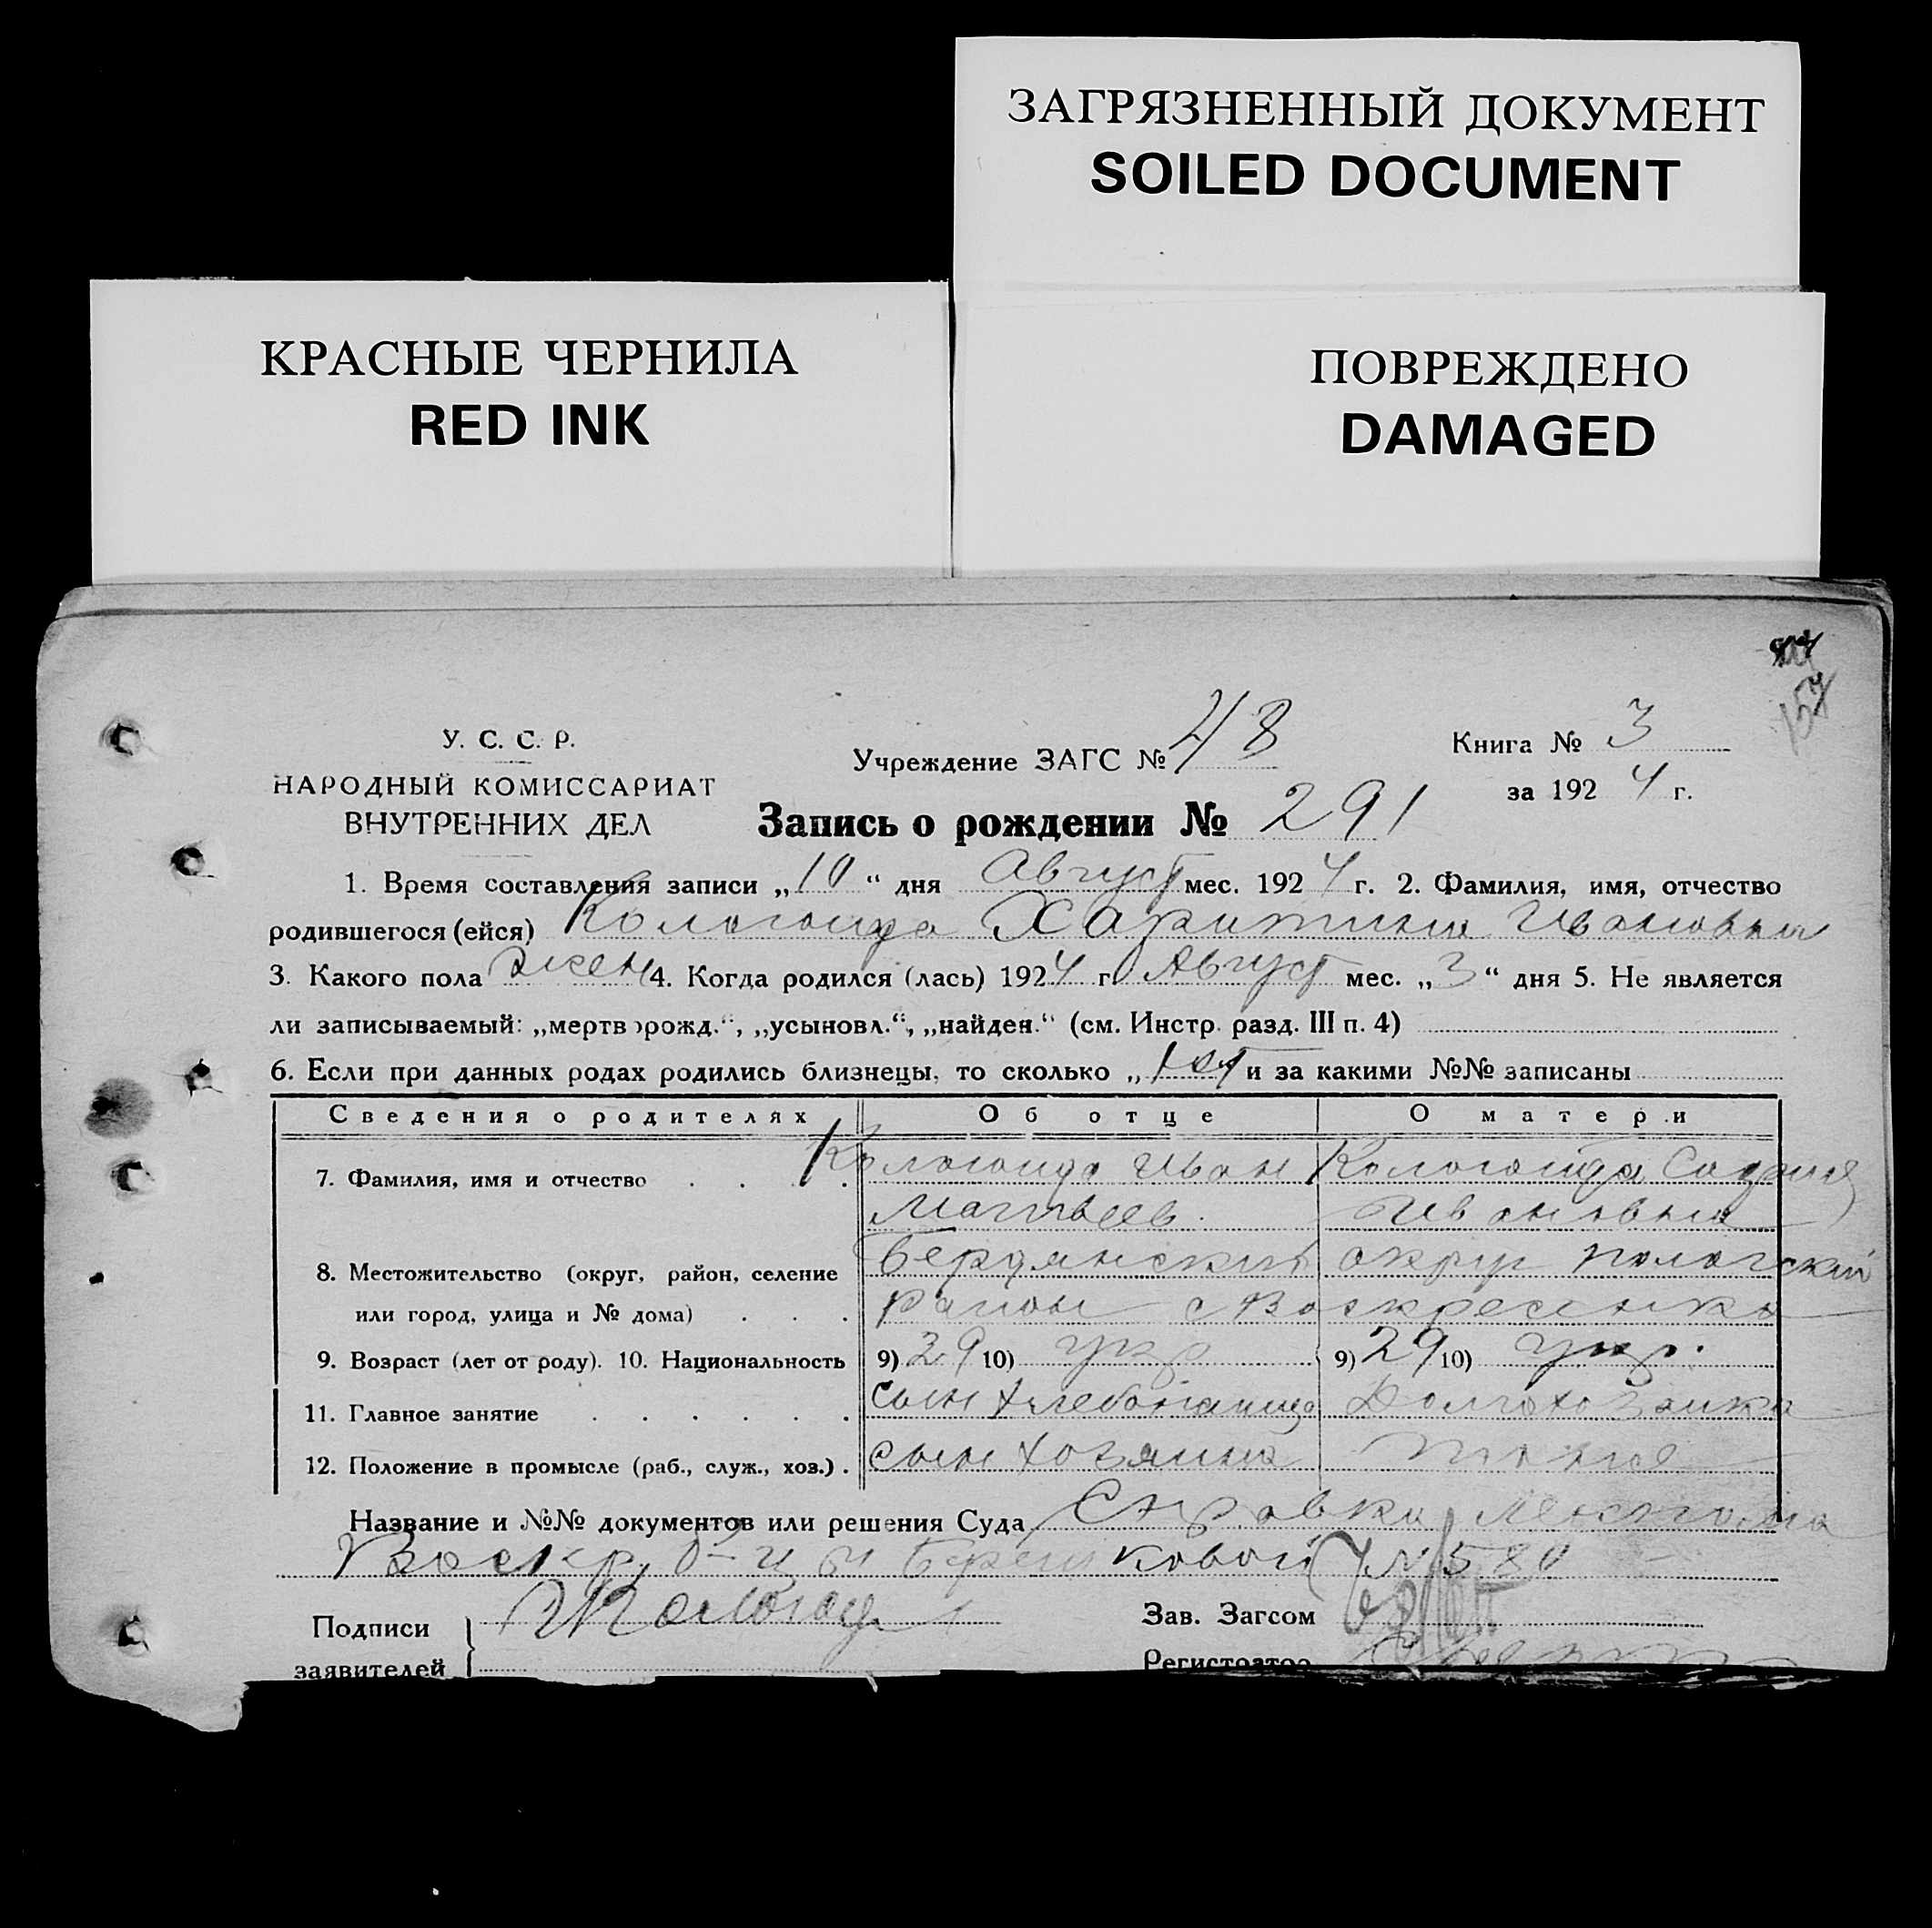 ЗАГРЯЗНЕННЫЙ ДОКУМЕНТ
SOILED DOCUMENT
КРАСНЫЕ ЧЕРНИЛА
RED INK
ПОВРЕЖДЕНО
DAMAGED
157
У. С. С. Р.
НАРОДНЫЙ КОМИССАРИАТ
ВНУТРЕННИХ ДЕЛ
Учреждение ЗАГС № 48
Книга № 3
за 1924 г.
Запись о рождении № 291
1. Время составления записи „10“ дня Август мес. 1924 г. 2. Фамилия, имя, отчество
родившегося (ейся) Кологойда Харитина Ивановна
3. Какого пола жен 4. Когда родился (лась) 1924 г. Август мес. „3“ дня 5. Не является
ли записываемый: „мертворожд.“, „усыновл.“, „найден.“ (см. Инстр. разд. III п. 4)
6. Если при данных родах родились близнецы, то сколько „ и за какими №№ записаны
Сведения о родителях Об отце О матери
7. Фамилия, имя и отчество Кологойда Иван Кологойда София
Матвеев. Ивановна
8. Местожительство (округ, район, селение Бердянский округ Пологский
или город, улица и № дома) район с Воскресенка
9. Возраст (лет от роду). 10. Национальность 9) 29 10) укр 9) 29 10) укр.
11. Главное занятие сын хлебопашца Домохозяйка
12. Положение в промысле (раб., служ., хоз.) сын хозяина
Название и №№ документов или решения Суда Справка
Воскр. б-цы № 580
Подписи
заявителей
Зав. Загсом
Регистратор